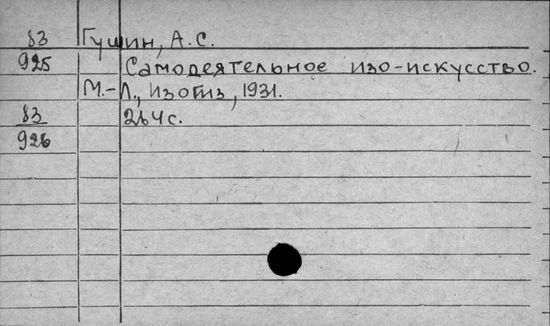 83 Гущин, А.С.
925 Самодеятельное изо-искусство.
М.-Л., Изогиз, 1931.
83 264 с.
926